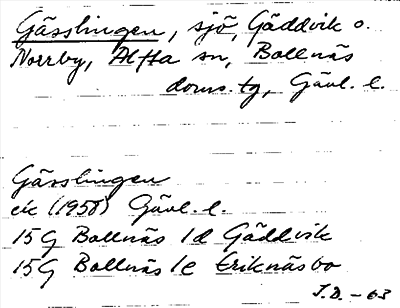 Gässlingen, sjö, Gäddvik o.
Norrby, Alfta sn, Bollnäs
doms.tg, Gävl. l.
Gässlingen
ek (1958) Gävl. l.
15G Bollnäs 1d Gäddvik
15G Bollnäs 1e Eriknäsbo
I.D. - 63